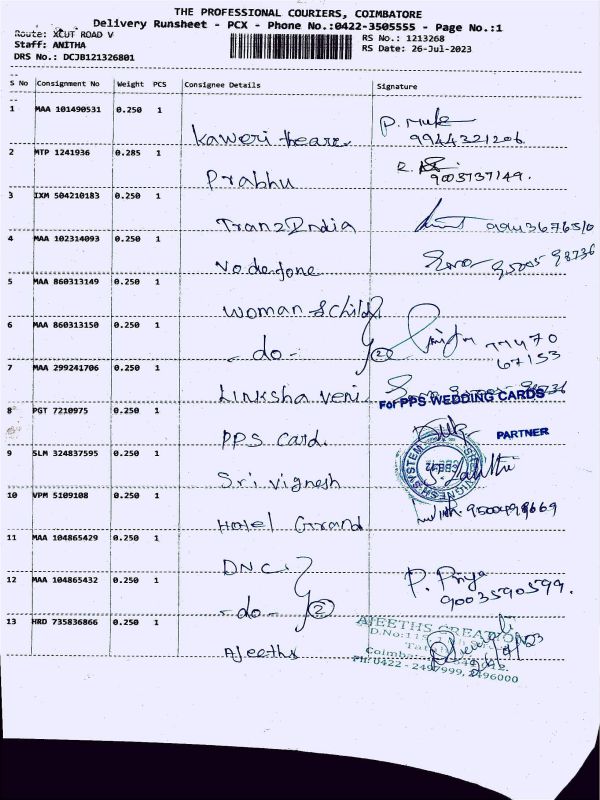 THE PROFESSIONAL COURIERS, COIMBATORE
Delivery Runsheet - PCX - Phone No.:0422-3505555 - Page No.:1
Route: XCUT ROAD V
RS No.: 1213268
Staff: ANITHA
RS Date: 26-Jul-2023
DRS No.: DCJB121326801
S No Consignment No Weight PCS Consignee Details Signature
1 MAA 101490531 0.250 1
Kaweri P. 9944321206
2 MTP 1241936 0.285 1
Prabhu 9003737149.
3 IXM 504210183 0.250 1
Tranz India
4 MAA 102314093 0.250 1
Vodefone
5 MAA 860313149 0.250 1
Woman & Child
6 MAA 860313150 0.250 1
- do - 2 77470
67153
7 MAA 299241706 0.250 1
Linksha Veni
For PPS WEDDING CARDS
8 PGT 7210975 0.250 1
PPS Card.
PARTNER
9 SLM 324837595 0.250 1
Sri Vignesh
10 VPM 5109108 0.250 1
Hotel Grand
11 MAA 104865429 0.250 1
DNC
12 MAA 104865432 0.250 1
- do - 2 P. Priya
9003590599.
13 HRD 735836866 0.250 1
Ajeeths
AJEETHS CREATION
PH: 0422 - 2497999, 2496000